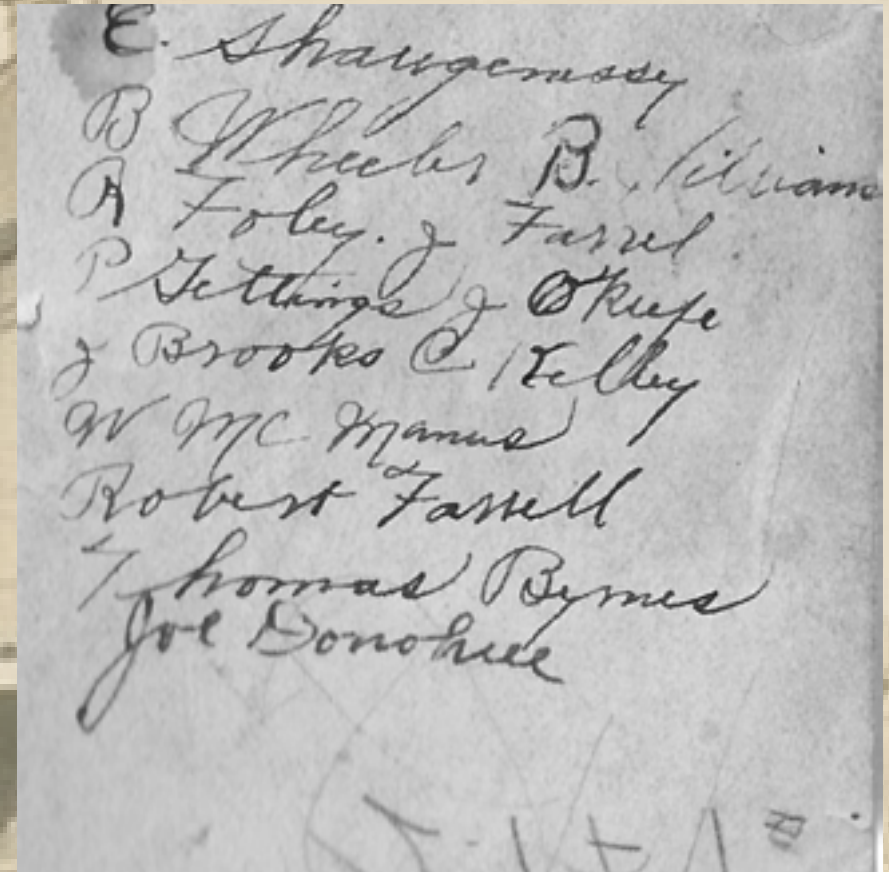 E. Shaugenessy
B Wheeler B. Williams
R Foley. J Farrel
P Gettings J OKeefe
J Brooks C Kelley
W Mc Manus
Robert Farrell
Thomas Byrnes
Joe Donohue